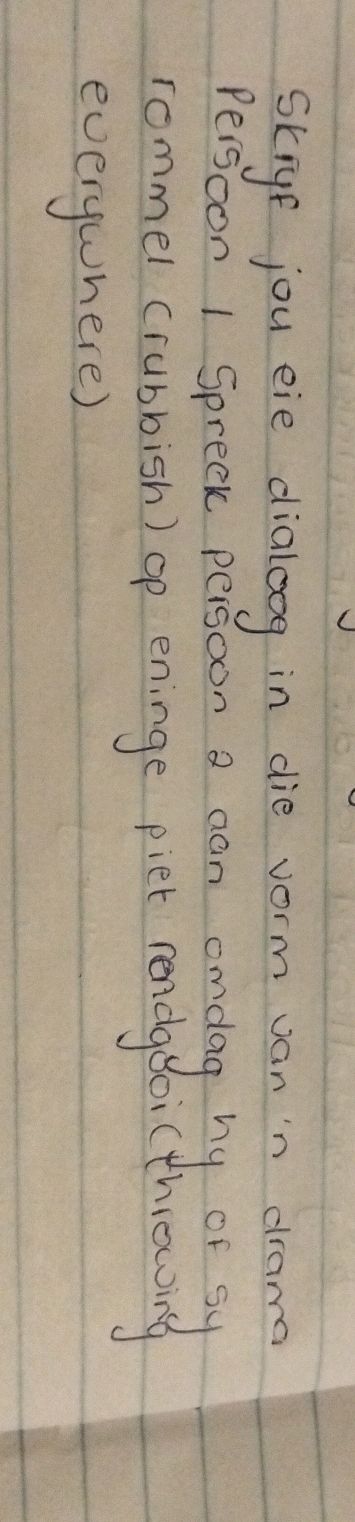 Skryf jou eie dialoog in die vorm van 'n drama
Persoon 1 Spreek persoon 2 aan omdag hy of sy
rommel (rubbish) op eninge piet rondgooi (throwing
everywhere)